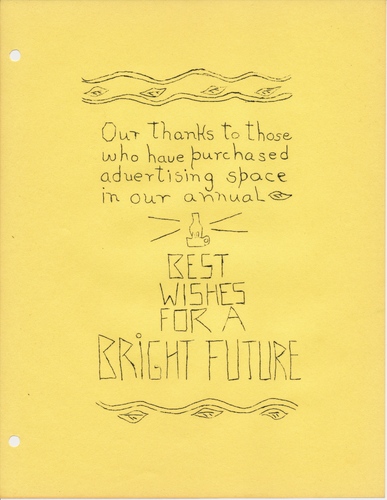 Our Thanks to those
who have purchased
advertising space
in our annual
BEST
WISHES
FOR A
BRiGHT FUTURE